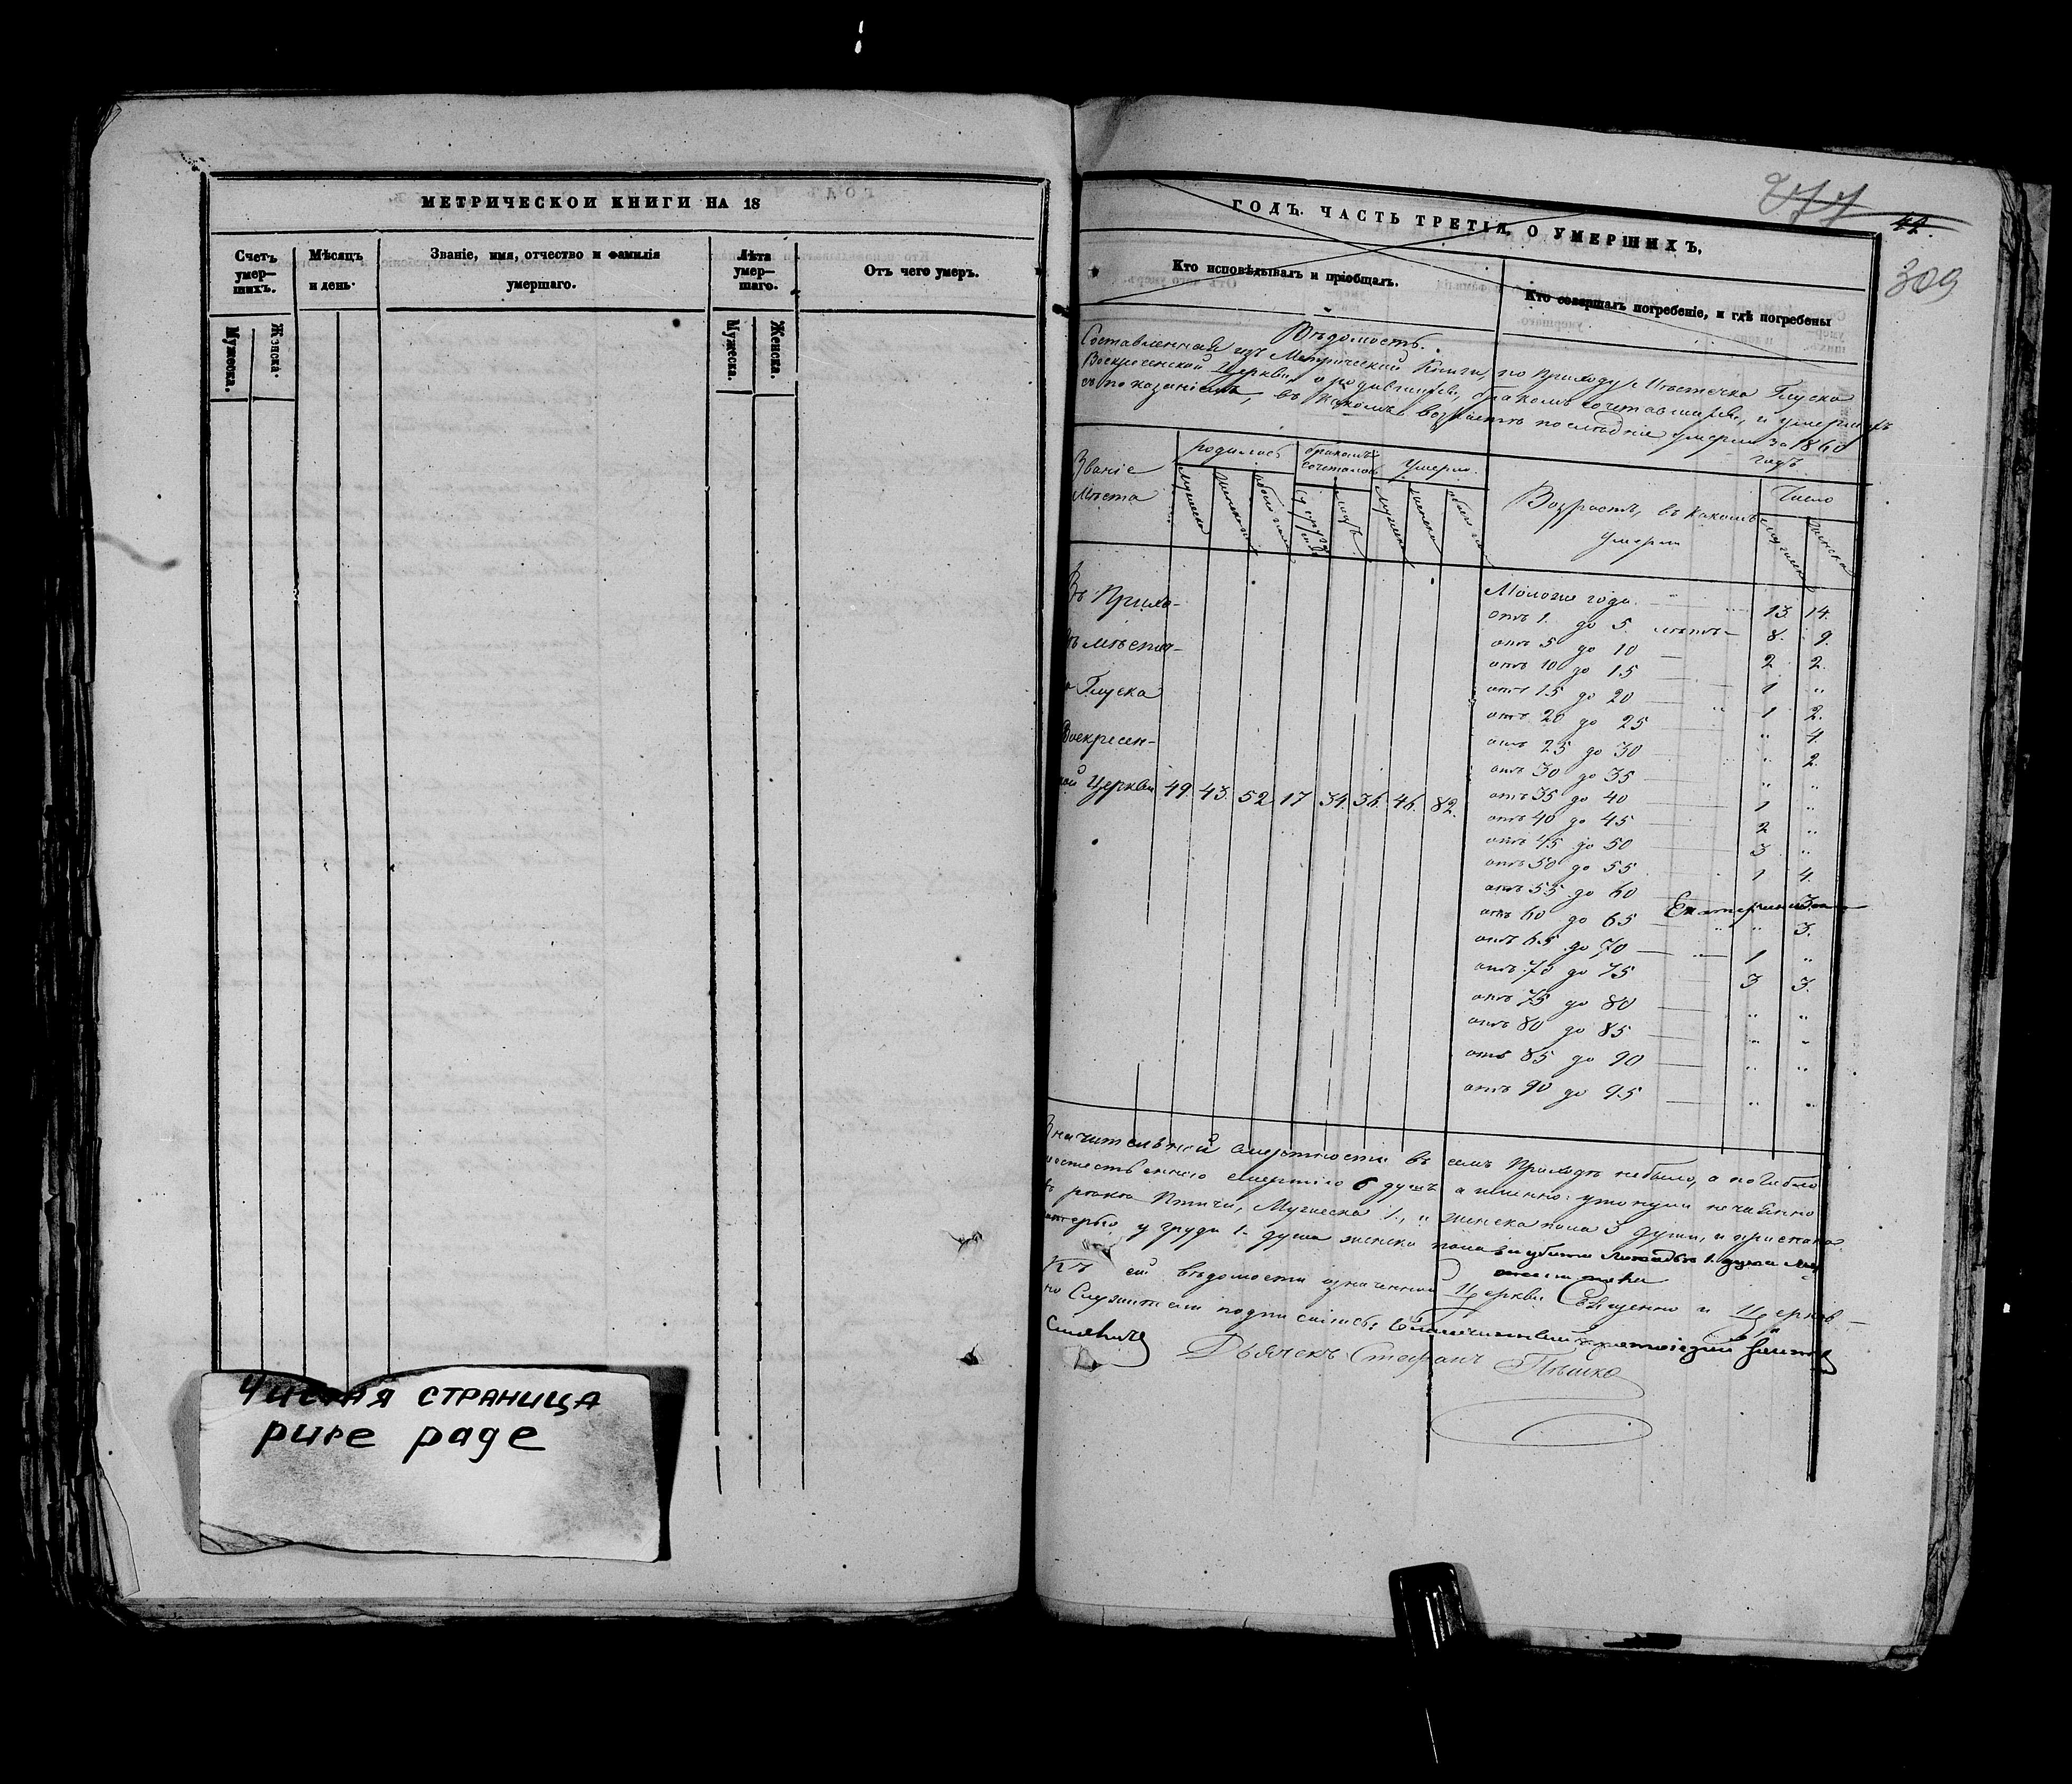 МЕТРИЧЕСКОЙ КНИГИ НА 18
Счетъ умер—шихъ.
Мѣсяцъ и день.
Званіе, имя, отчество и фамилія умершаго.
Лѣта умер—шаго.
Отъ чего умеръ.
Мужеска.
Женска.
Мужеска.
Женска.
Чистая страница
pure page
ГОДЪ. ЧАСТЬ ТРЕТІЯ, О УМЕРШИХЪ,
42.
309
Кто исповѣдывалъ и пріобщалъ.
Кто совершалъ погребеніе, и гдѣ погребены
Вѣдомость.
Составленная изъ Метрической Книги, по Приходу Мѣстечка Глуска
Воскресенской Церкви, о родившихся, бракомъ сочетавшихся, и умершихъ
съ показаніемъ, въ какомъ возрастѣ послѣдніе умерли за 1860
годъ
Званіе Мѣста
родилось
бракомъ сочеталось
Умерло.
Возрастъ, въ какомъ умерли
Число
Мужеска
Женска
Въ Прихо-
дѣ мѣстеч-
Глуска
Воскресен-
ской Церкви 49. 43. 52 17 34. 36. 46. 82.
Моложе года 13. 14.
отъ 1. до 5. лѣтъ — 8. 9.
отъ 5 до 10 — 2 2.
отъ 10 до 15 — 1 "
отъ 15 до 20 — 1 2.
отъ 20 до 25 — " 4.
отъ 25 до 30 — " 2.
отъ 30 до 35 — " "
отъ 35 до 40 — 1 "
отъ 40 до 45 — 2 "
отъ 45 до 50 — 3 "
отъ 50 до 55 — 1 4.
отъ 55 до 60 3.
отъ 60 до 65 — " 3.
отъ 65 до 70 — 1 "
отъ 70 до 75 — 3 3.
отъ 75 до 80 — " "
отъ 80 до 85 — " "
отъ 85 до 90 — " "
отъ 90 до 95 — " "
Значительной смертности въ семъ Приходѣ небыло, а погибло
смертію 6 душъ а именно: утонули нечаянно
Птичи, Мужеска 1., " женска пола 3 души, и приспана
матерью у груди 1. душа женска пола и убита лошадью 1. душа
Къ сей вѣдомости означенной Церкви Священно и Церков—
но Служители подписались:
Дьячекъ Стефанъ